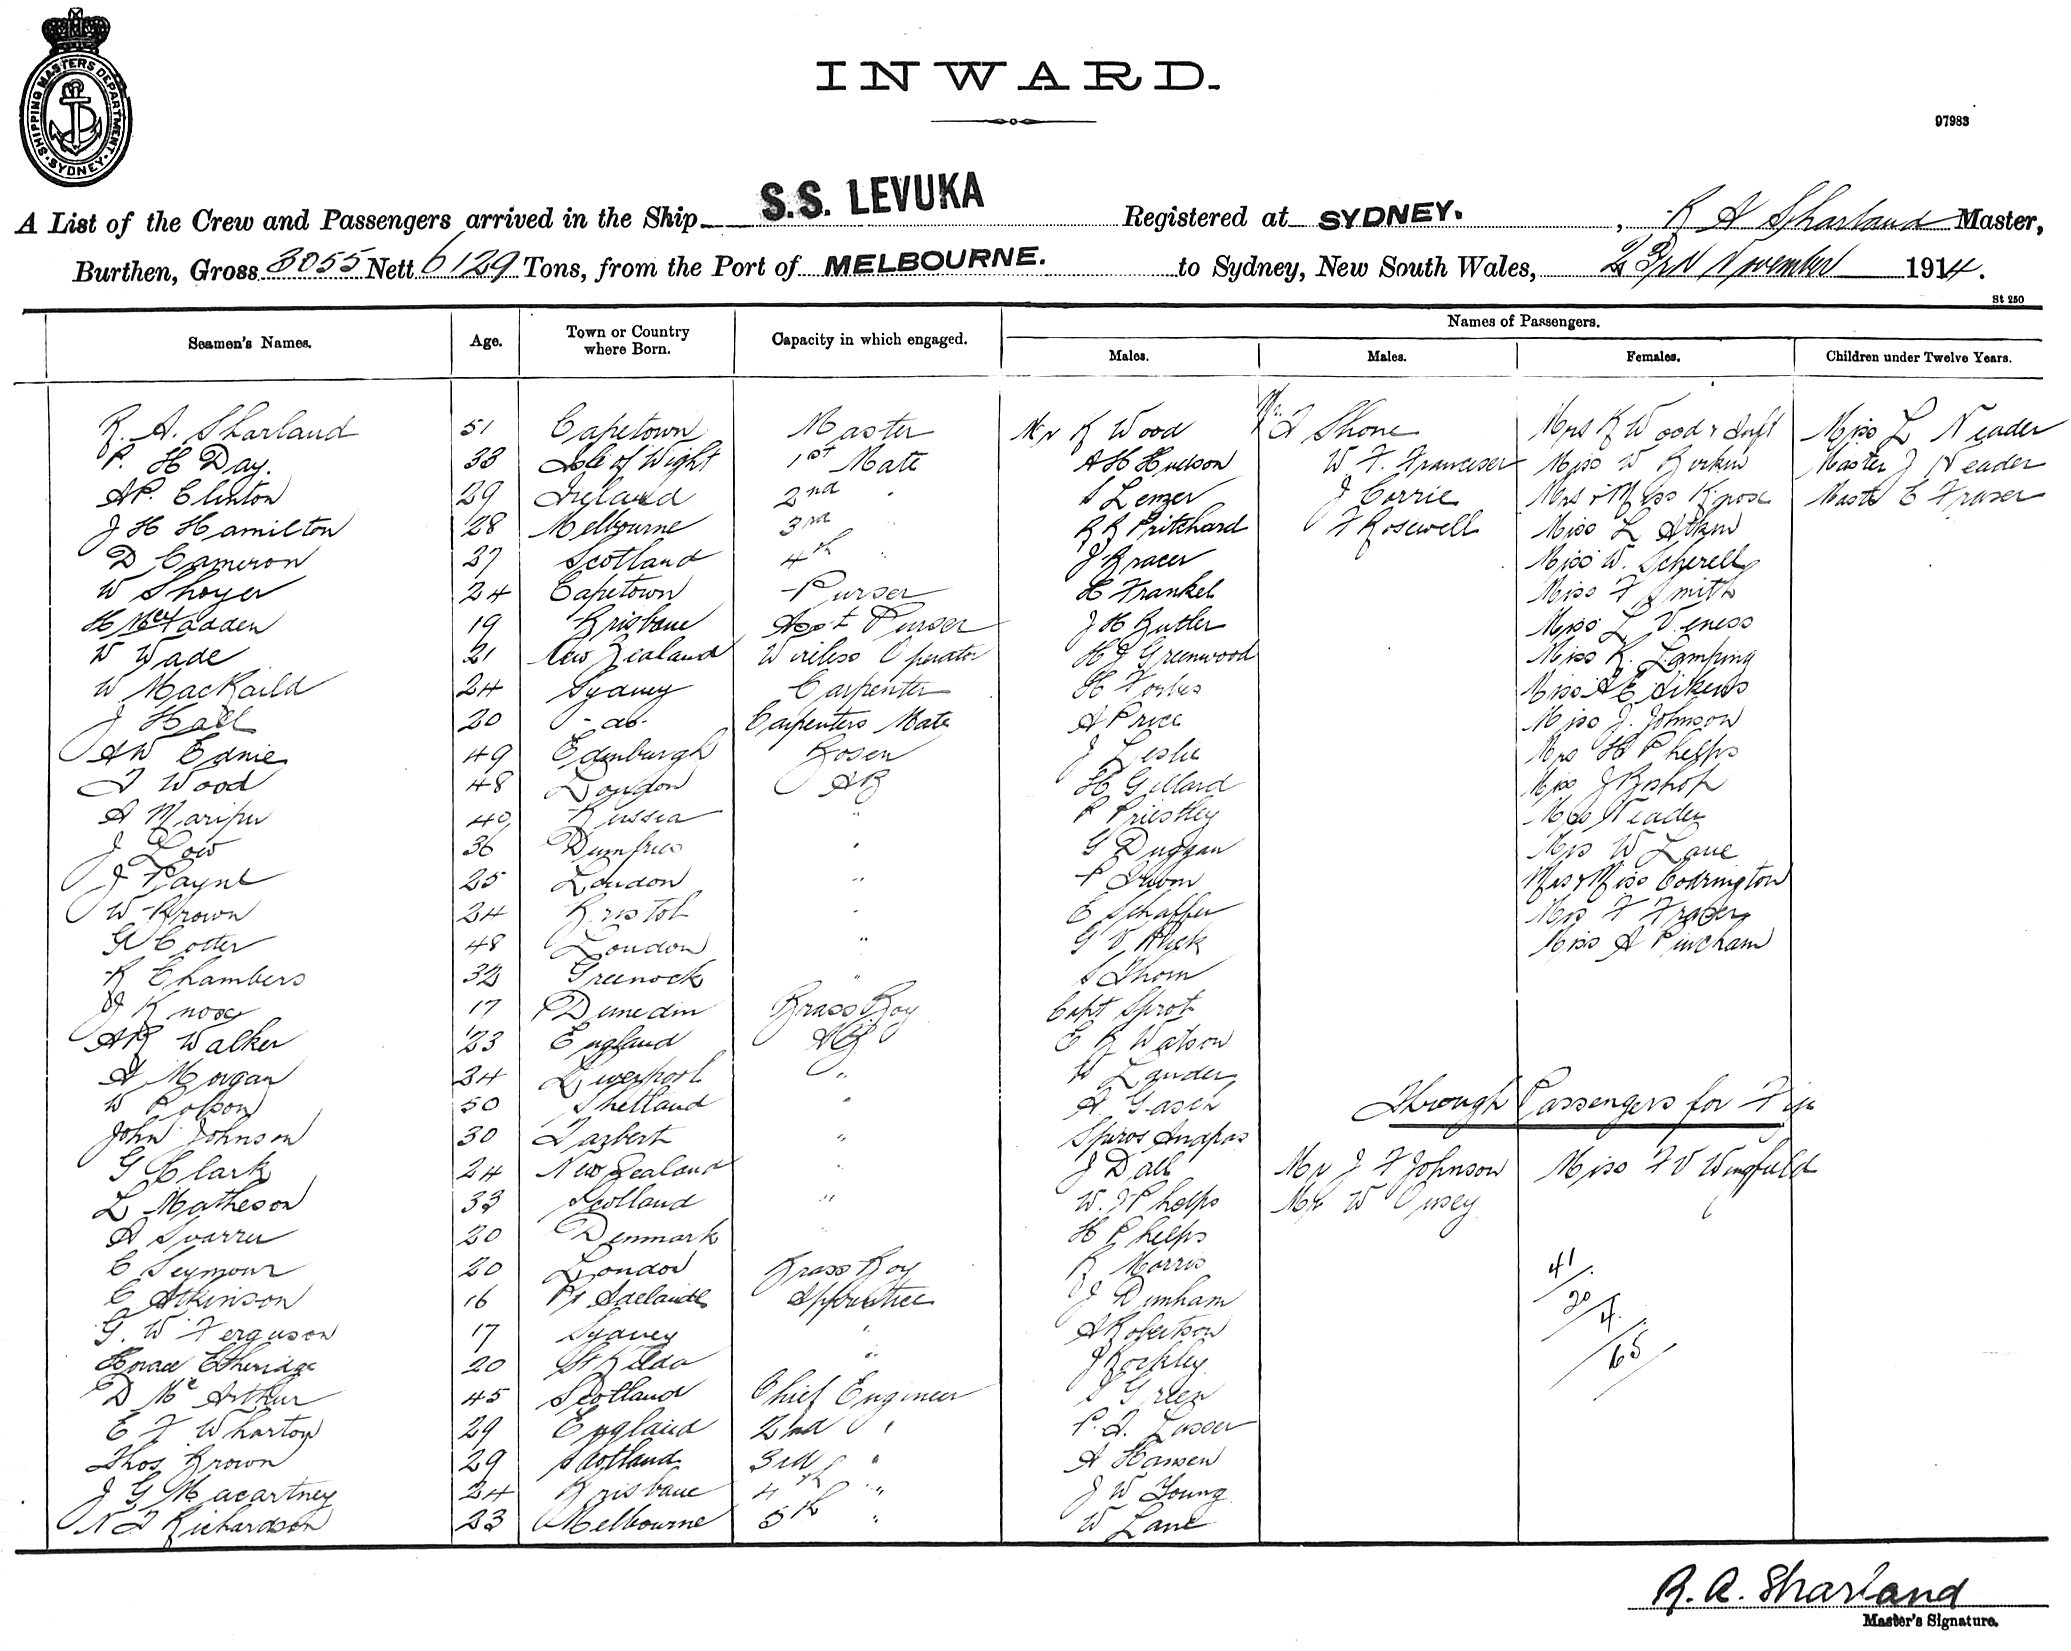 SHIPPING MASTERS DEPARTMENT · SYDNEY ·
INWARD.
97983
A List of the Crew and Passengers arrived in the Ship S.S. LEVUKA Registered at SYDNEY. , R A Sharland Master,
Burthen, Gross 3055 Nett 6129 Tons, from the Port of MELBOURNE. to Sydney, New South Wales, 23rd November 1914.
St 250
Names of Passengers.
Seamen's Names. Age. Town or Country where Born. Capacity in which engaged. Males. Males. Females. Children under Twelve Years.
R. A. Sharland 51 Capetown Master Mr R Wood Mr Shone Mrs R Wood & Inft Miss L Neader
P. H Day. 33 Isle of Wight 1st Mate A H Hudson W F. Miss W Birkin Master J Neader
AP. Clinton 29 Ireland 2nd " S Lenzer J Corrie Mrs & Miss Master C Fraser
J H Hamilton 28 Melbourne 3rd R R Pritchard F Rosewell Miss L Atkin
D Cameron 37 Scotland 4th " J Bracer Miss W. Scherell
W Shoyer 24 Capetown Purser H Frankel Miss F Smith
H McFadden 19 Brisbane Asst Purser J H Butler Miss L Veness
W Wade 21 New Zealand Wireless Operator H J Greenwood Miss K. Lamping
W MacKaild 24 Sydney Carpenter H Forbes Miss A E Aikens
J Hall 20 - do - Carpenters Mate A Price Miss J. Johnson
AW Ednie 49 Edinburgh Bosen J Leslie Mrs H Phelps
Wood 48 London AB H Gillard Miss J Bishop
A 40 Russia " P Priestley Neader
J Low 36 Dumfries " G Duggan Mrs W Lane
J Payne 25 London " P Mrs & Miss Codrington
W Brown 24 Bristol " E Schaffer Mrs F Fraser
G Cotter 48 London " G V Miss A Pincham
R Chambers 32 Greenock " S Thom
J Knox 17 Dunedin Brass Boy Capt Sprot
AB Walker 23 England AB E R Watson
A Morgan 34 Liverpool " W Lauder
W Robson 50 Shetland " A Gasch Through Passengers for Fiji
John Johnson 30 " Spiros
G Clark 24 New Zealand " J Dall Mr J F Johnson Miss F V Wingfield
L Matheson 33 Scotland " W. J Phelps Mr W
A 20 Denmark " H Phelps
C Seymour 20 London Brass Boy R Morris 41
C Atkinson 16 Pt Adelaide Apprentice J Dunham 20/4
G. W Ferguson 17 Sydney " A Robertson
Horace Etheridge 20 St Kilda " J 65
D McArthur 45 Scotland Chief Engineer S Green
E F Wharton 29 England 2nd " P. A.
Thos Brown 29 Scotland 3rd " A Hansen
J G Macartney 24 Brisbane 4th " J W Young
N Richardson 23 Melbourne 5th " W Lane
R. A. Sharland
Master's Signature.